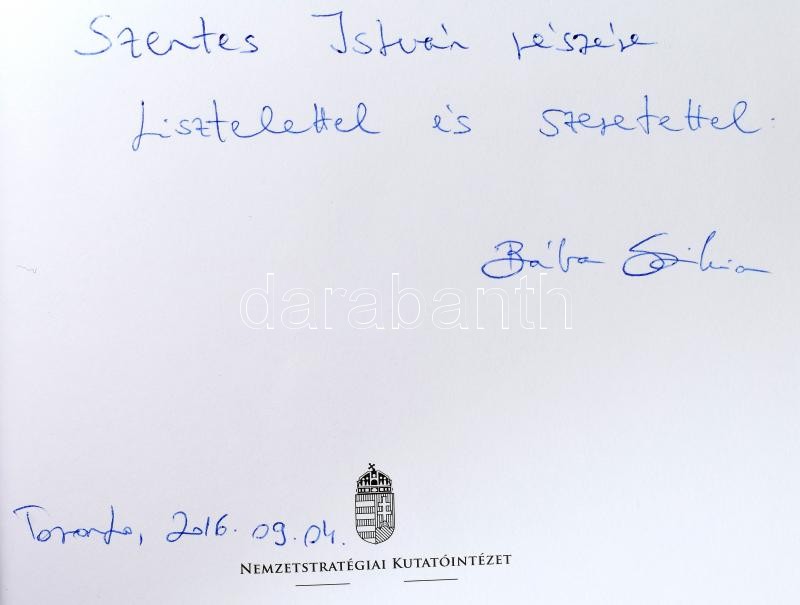 Szentes István részére
tisztelettel és szeretettel.
Bába Szilvia
darabanth
Toronto, 2016. 09.04.
NEMZETSTRATÉGIAI KUTATÓINTÉZET